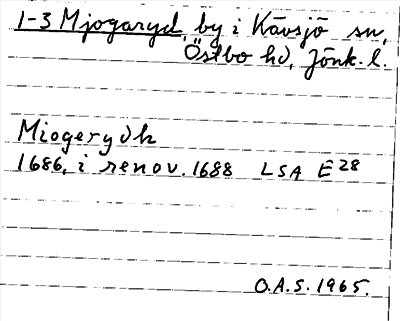 1-3 Mjogaryd, by i Kävsjö sn,
Östbo hd, Jönk. l.
Miogerydh
1686, i renov. 1688 LSA E28
O.A.S. 1965.